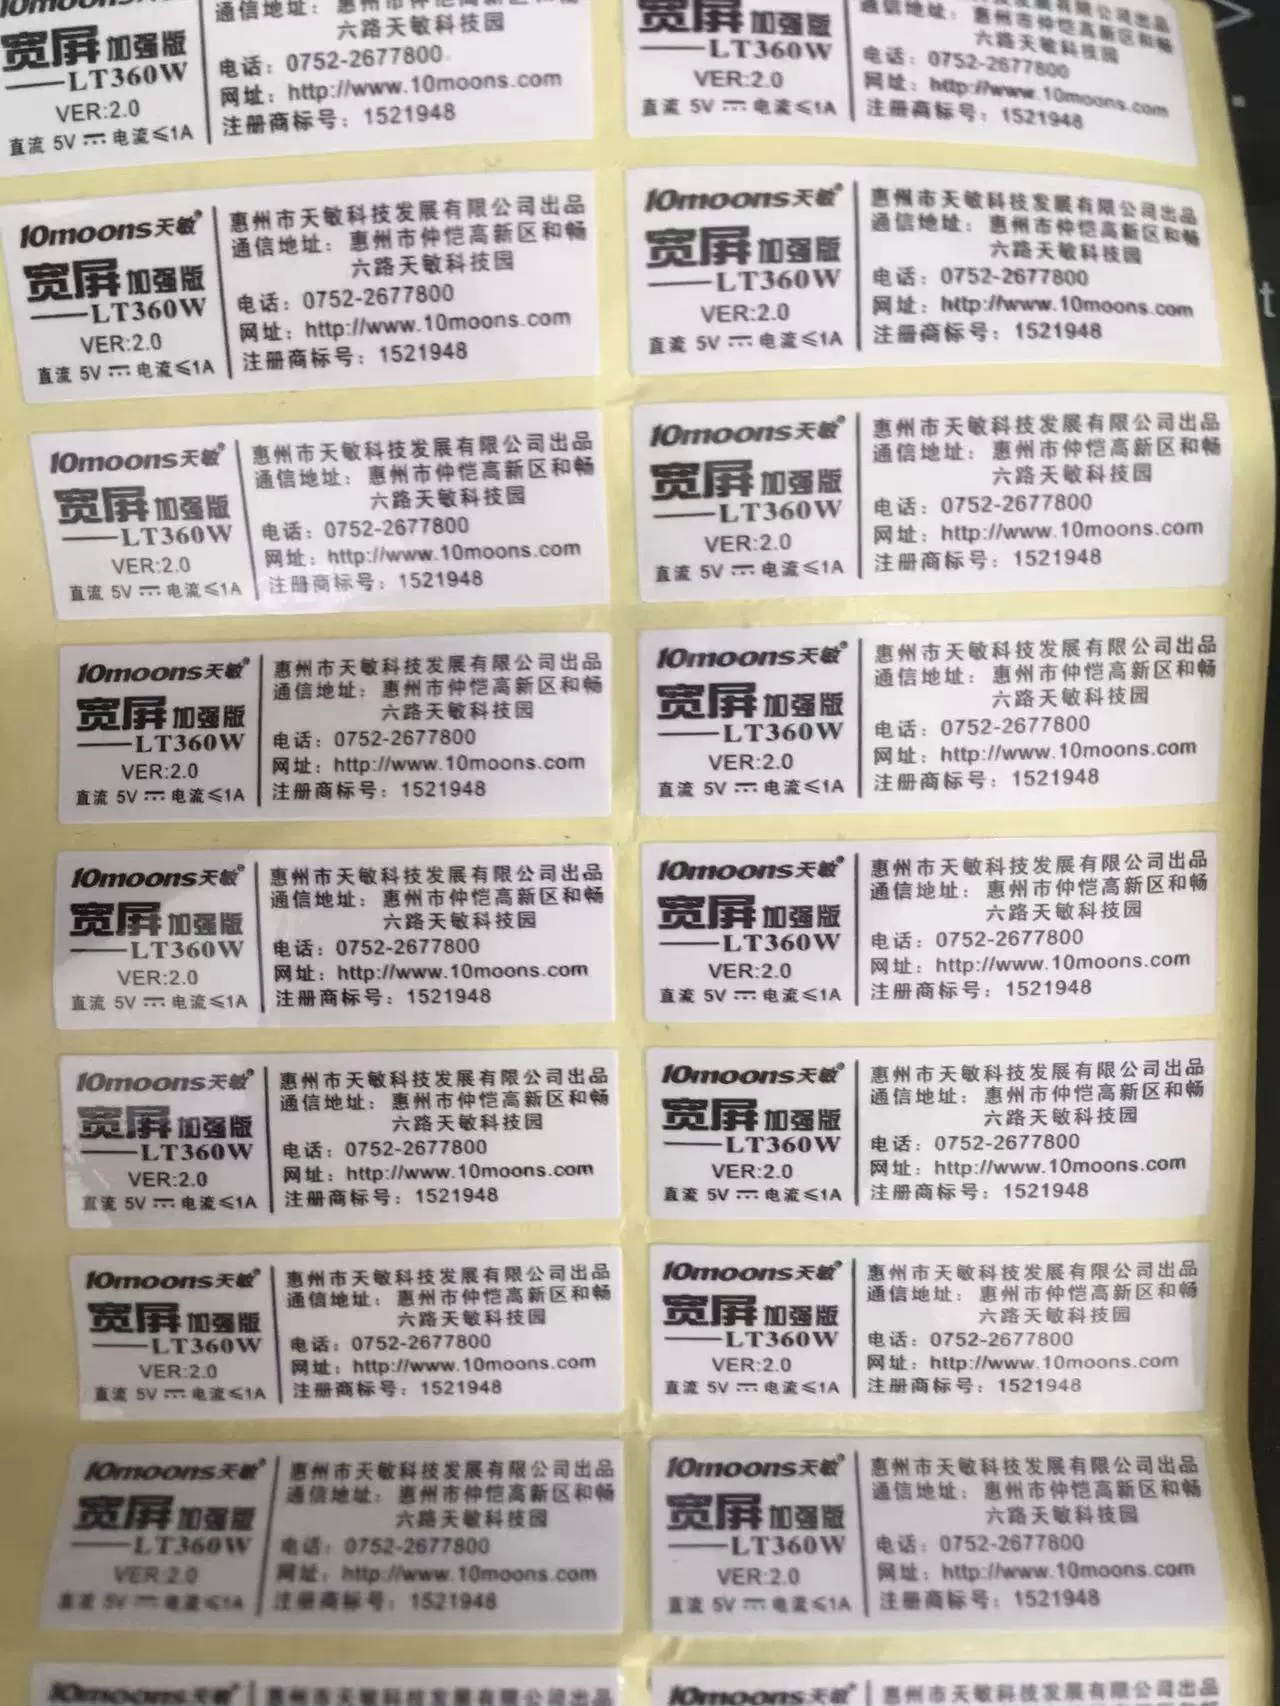 10moons
宽屏 加强版
——LT360W
VER:2.0
直流 5V ⎓ 电流≤1A
通信地址：惠州市仲恺高新区和畅
六路天敏科技园
电话：0752-2677800
网址：http://www.10moons.com
注册商标号：1521948
宽屏 加强版
——LT360W
VER:2.0
直流 5V ⎓ 电流≤1A
通信地址：惠州市仲恺高新区和畅
六路天敏科技园
电话：0752-2677800
网址：http://www.10moons.com
注册商标号：1521948
10moons天敏®
宽屏 加强版
——LT360W
VER:2.0
直流 5V ⎓ 电流≤1A
惠州市天敏科技发展有限公司出品
通信地址：惠州市仲恺高新区和畅
六路天敏科技园
电话：0752-2677800
网址：http://www.10moons.com
注册商标号：1521948
10moons天敏®
宽屏 加强版
——LT360W
VER:2.0
直流 5V ⎓ 电流≤1A
惠州市天敏科技发展有限公司出品
通信地址：惠州市仲恺高新区和畅
六路天敏科技园
电话：0752-2677800
网址：http://www.10moons.com
注册商标号：1521948
10moons天敏®
宽屏 加强版
——LT360W
VER:2.0
直流 5V ⎓ 电流≤1A
惠州市天敏科技发展有限公司出品
通信地址：惠州市仲恺高新区和畅
六路天敏科技园
电话：0752-2677800
网址：http://www.10moons.com
注册商标号：1521948
10moons天敏®
宽屏 加强版
——LT360W
VER:2.0
直流 5V ⎓ 电流≤1A
惠州市天敏科技发展有限公司出品
通信地址：惠州市仲恺高新区和畅
六路天敏科技园
电话：0752-2677800
网址：http://www.10moons.com
注册商标号：1521948
10moons天敏®
宽屏 加强版
——LT360W
VER:2.0
直流 5V ⎓ 电流≤1A
惠州市天敏科技发展有限公司出品
通信地址：惠州市仲恺高新区和畅
六路天敏科技园
电话：0752-2677800
网址：http://www.10moons.com
注册商标号：1521948
10moons天敏®
宽屏 加强版
——LT360W
VER:2.0
直流 5V ⎓ 电流≤1A
惠州市天敏科技发展有限公司出品
通信地址：惠州市仲恺高新区和畅
六路天敏科技园
电话：0752-2677800
网址：http://www.10moons.com
注册商标号：1521948
10moons天敏®
宽屏 加强版
——LT360W
VER:2.0
直流 5V ⎓ 电流≤1A
惠州市天敏科技发展有限公司出品
通信地址：惠州市仲恺高新区和畅
六路天敏科技园
电话：0752-2677800
网址：http://www.10moons.com
注册商标号：1521948
10moons天敏®
宽屏 加强版
——LT360W
VER:2.0
直流 5V ⎓ 电流≤1A
惠州市天敏科技发展有限公司出品
通信地址：惠州市仲恺高新区和畅
六路天敏科技园
电话：0752-2677800
网址：http://www.10moons.com
注册商标号：1521948
10moons天敏®
宽屏 加强版
——LT360W
VER:2.0
直流 5V ⎓ 电流≤1A
惠州市天敏科技发展有限公司出品
通信地址：惠州市仲恺高新区和畅
六路天敏科技园
电话：0752-2677800
网址：http://www.10moons.com
注册商标号：1521948
10moons天敏®
宽屏 加强版
——LT360W
VER:2.0
直流 5V ⎓ 电流≤1A
惠州市天敏科技发展有限公司出品
通信地址：惠州市仲恺高新区和畅
六路天敏科技园
电话：0752-2677800
网址：http://www.10moons.com
注册商标号：1521948
10moons天敏®
宽屏 加强版
——LT360W
VER:2.0
直流 5V ⎓ 电流≤1A
惠州市天敏科技发展有限公司出品
通信地址：惠州市仲恺高新区和畅
六路天敏科技园
电话：0752-2677800
网址：http://www.10moons.com
注册商标号：1521948
10moons天敏®
宽屏 加强版
——LT360W
VER:2.0
直流 5V ⎓ 电流≤1A
惠州市天敏科技发展有限公司出品
通信地址：惠州市仲恺高新区和畅
六路天敏科技园
电话：0752-2677800
网址：http://www.10moons.com
注册商标号：1521948
10moons天敏®
宽屏 加强版
——LT360W
VER:2.0
直流 5V ⎓ 电流≤1A
惠州市天敏科技发展有限公司出品
通信地址：惠州市仲恺高新区和畅
六路天敏科技园
电话：0752-2677800
网址：http://www.10moons.com
注册商标号：1521948
10moons天敏®
宽屏 加强版
——LT360W
VER:2.0
直流 5V ⎓ 电流≤1A
惠州市天敏科技发展有限公司出品
通信地址：惠州市仲恺高新区和畅
六路天敏科技园
电话：0752-2677800
网址：http://www.10moons.com
注册商标号：1521948
10moons天敏®
惠州市天敏科技发展有限公司出品
10moons天敏®
惠州市天敏科技发展有限公司出品